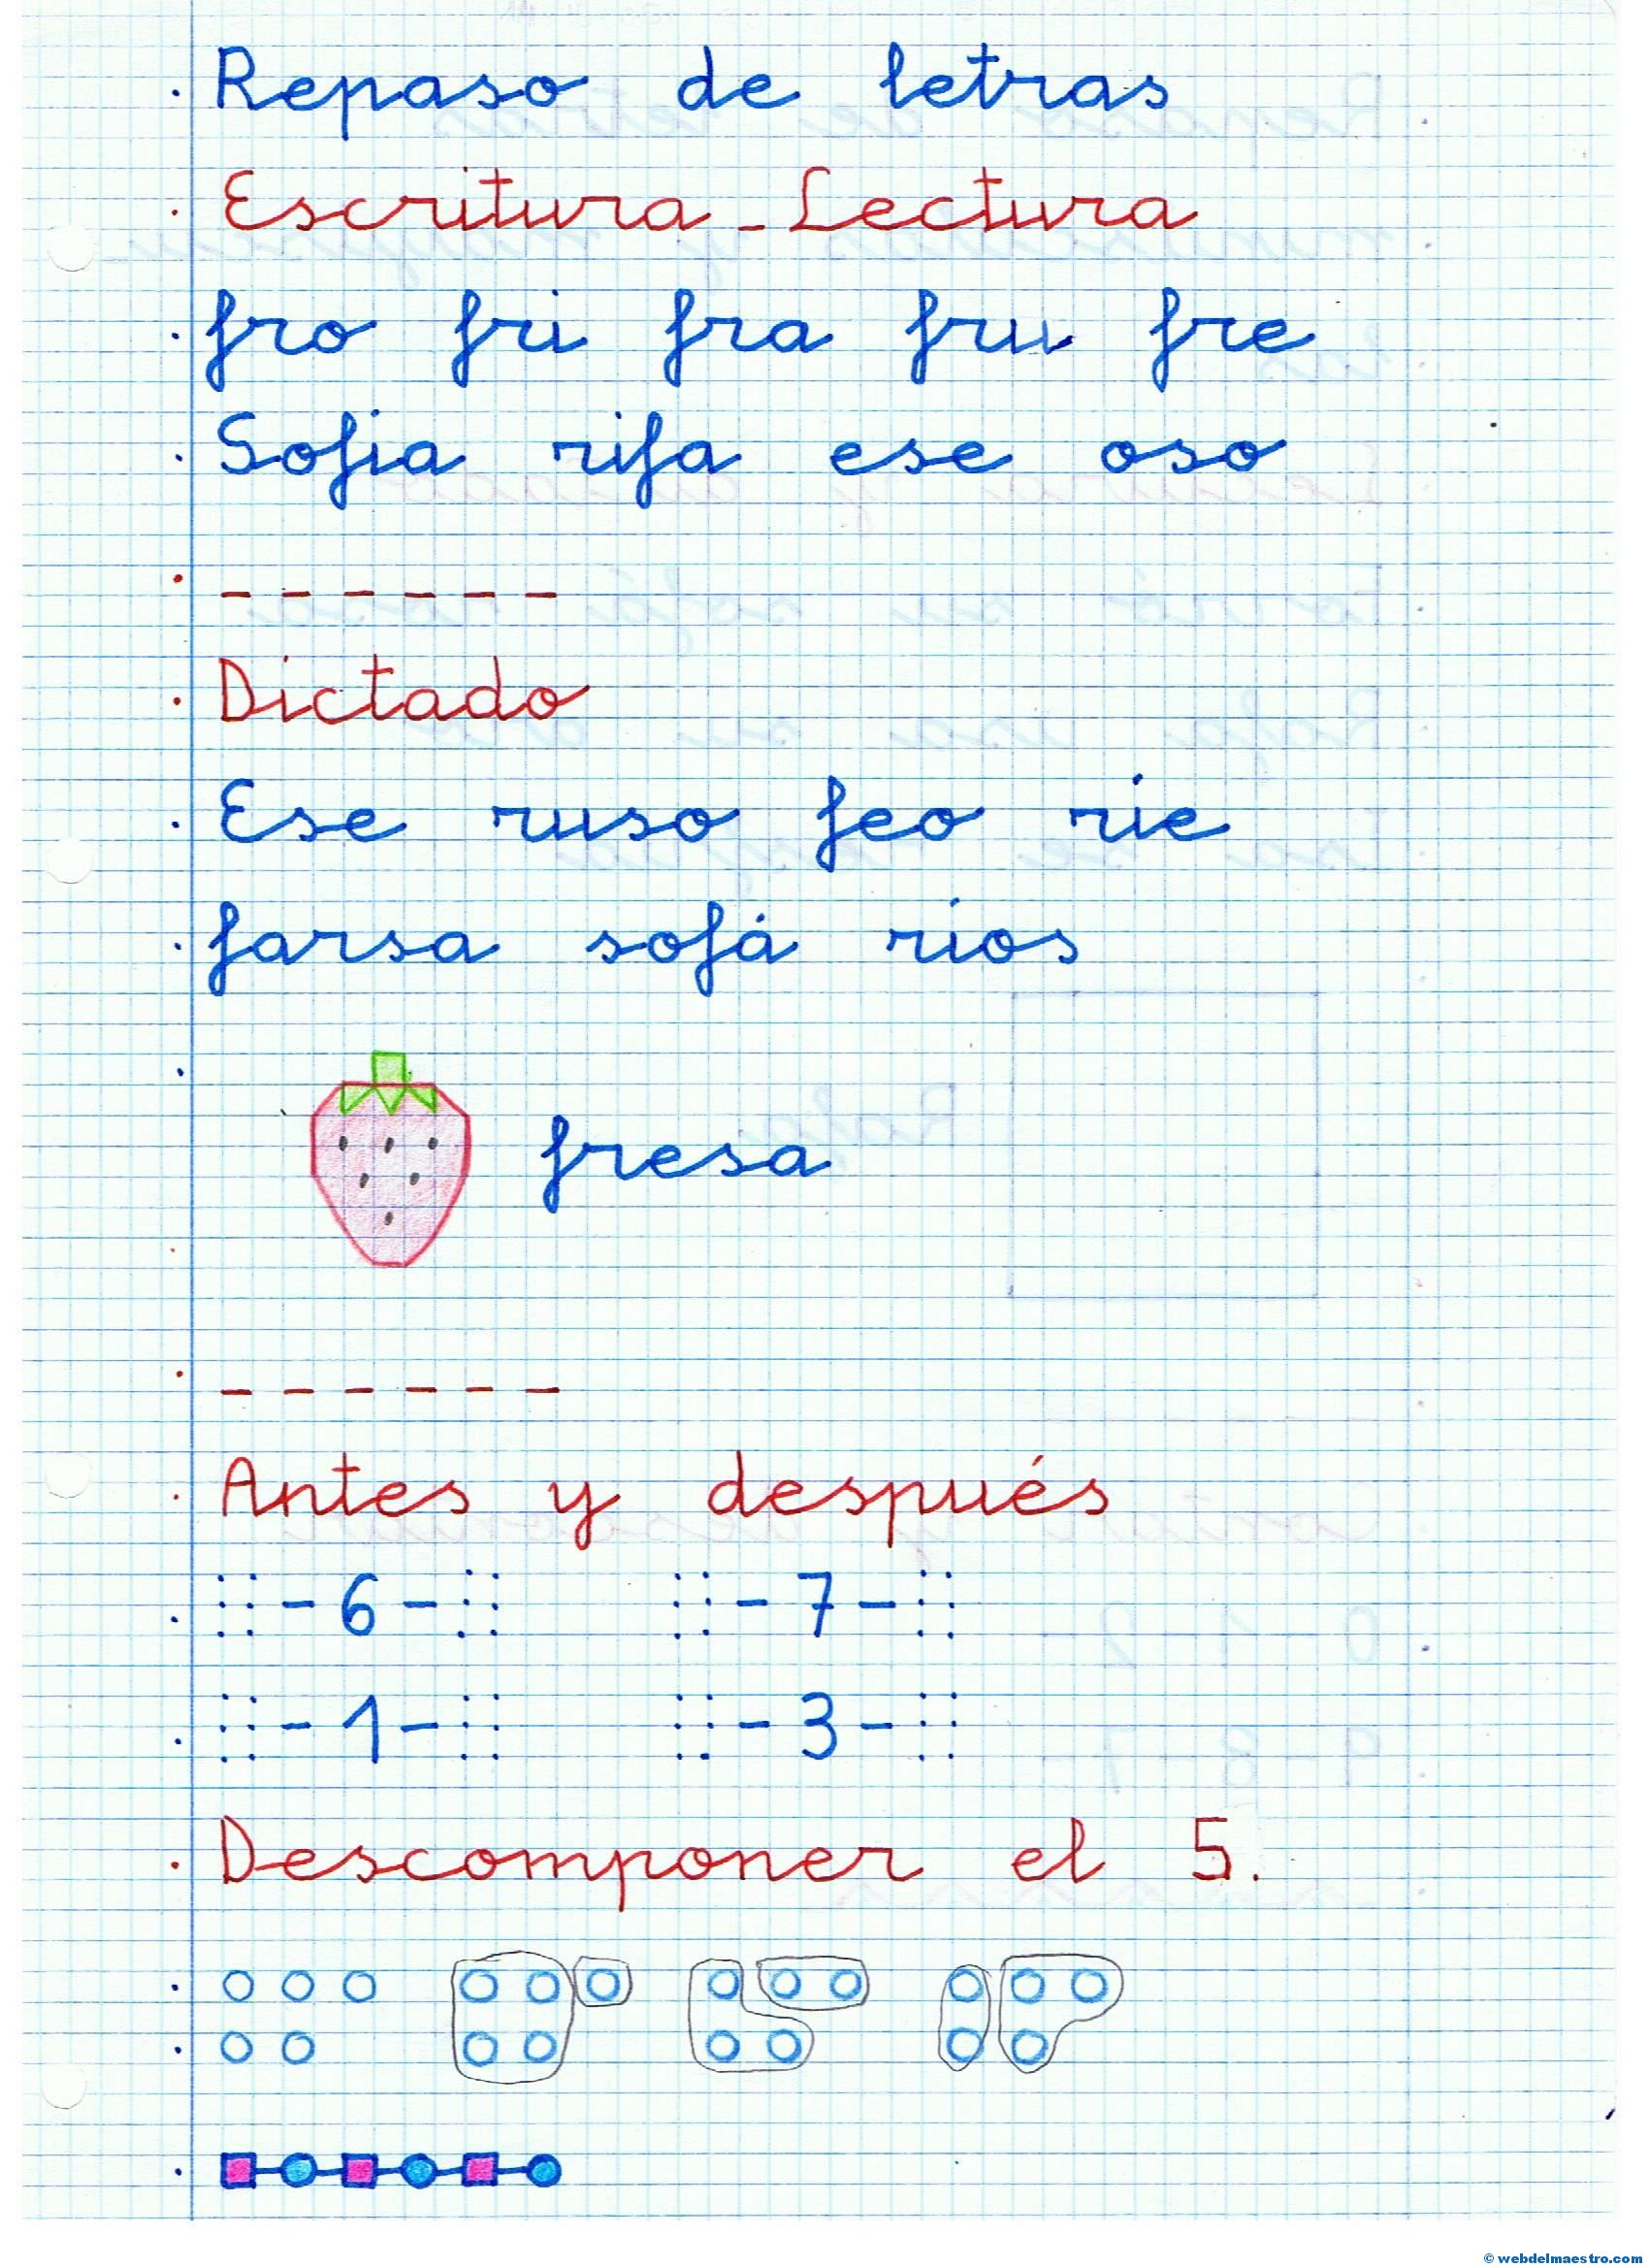 Repaso de letras
Escritura - Lectura
fro fri fra fru fre
Sofia rifa ese oso
------
Dictado
Ese ruso feo rie
farsa sofá rios
fresa
------
Antes y después
-6- -7-
-1- -3-
Descomponer el 5.
© webdelmaestro.com